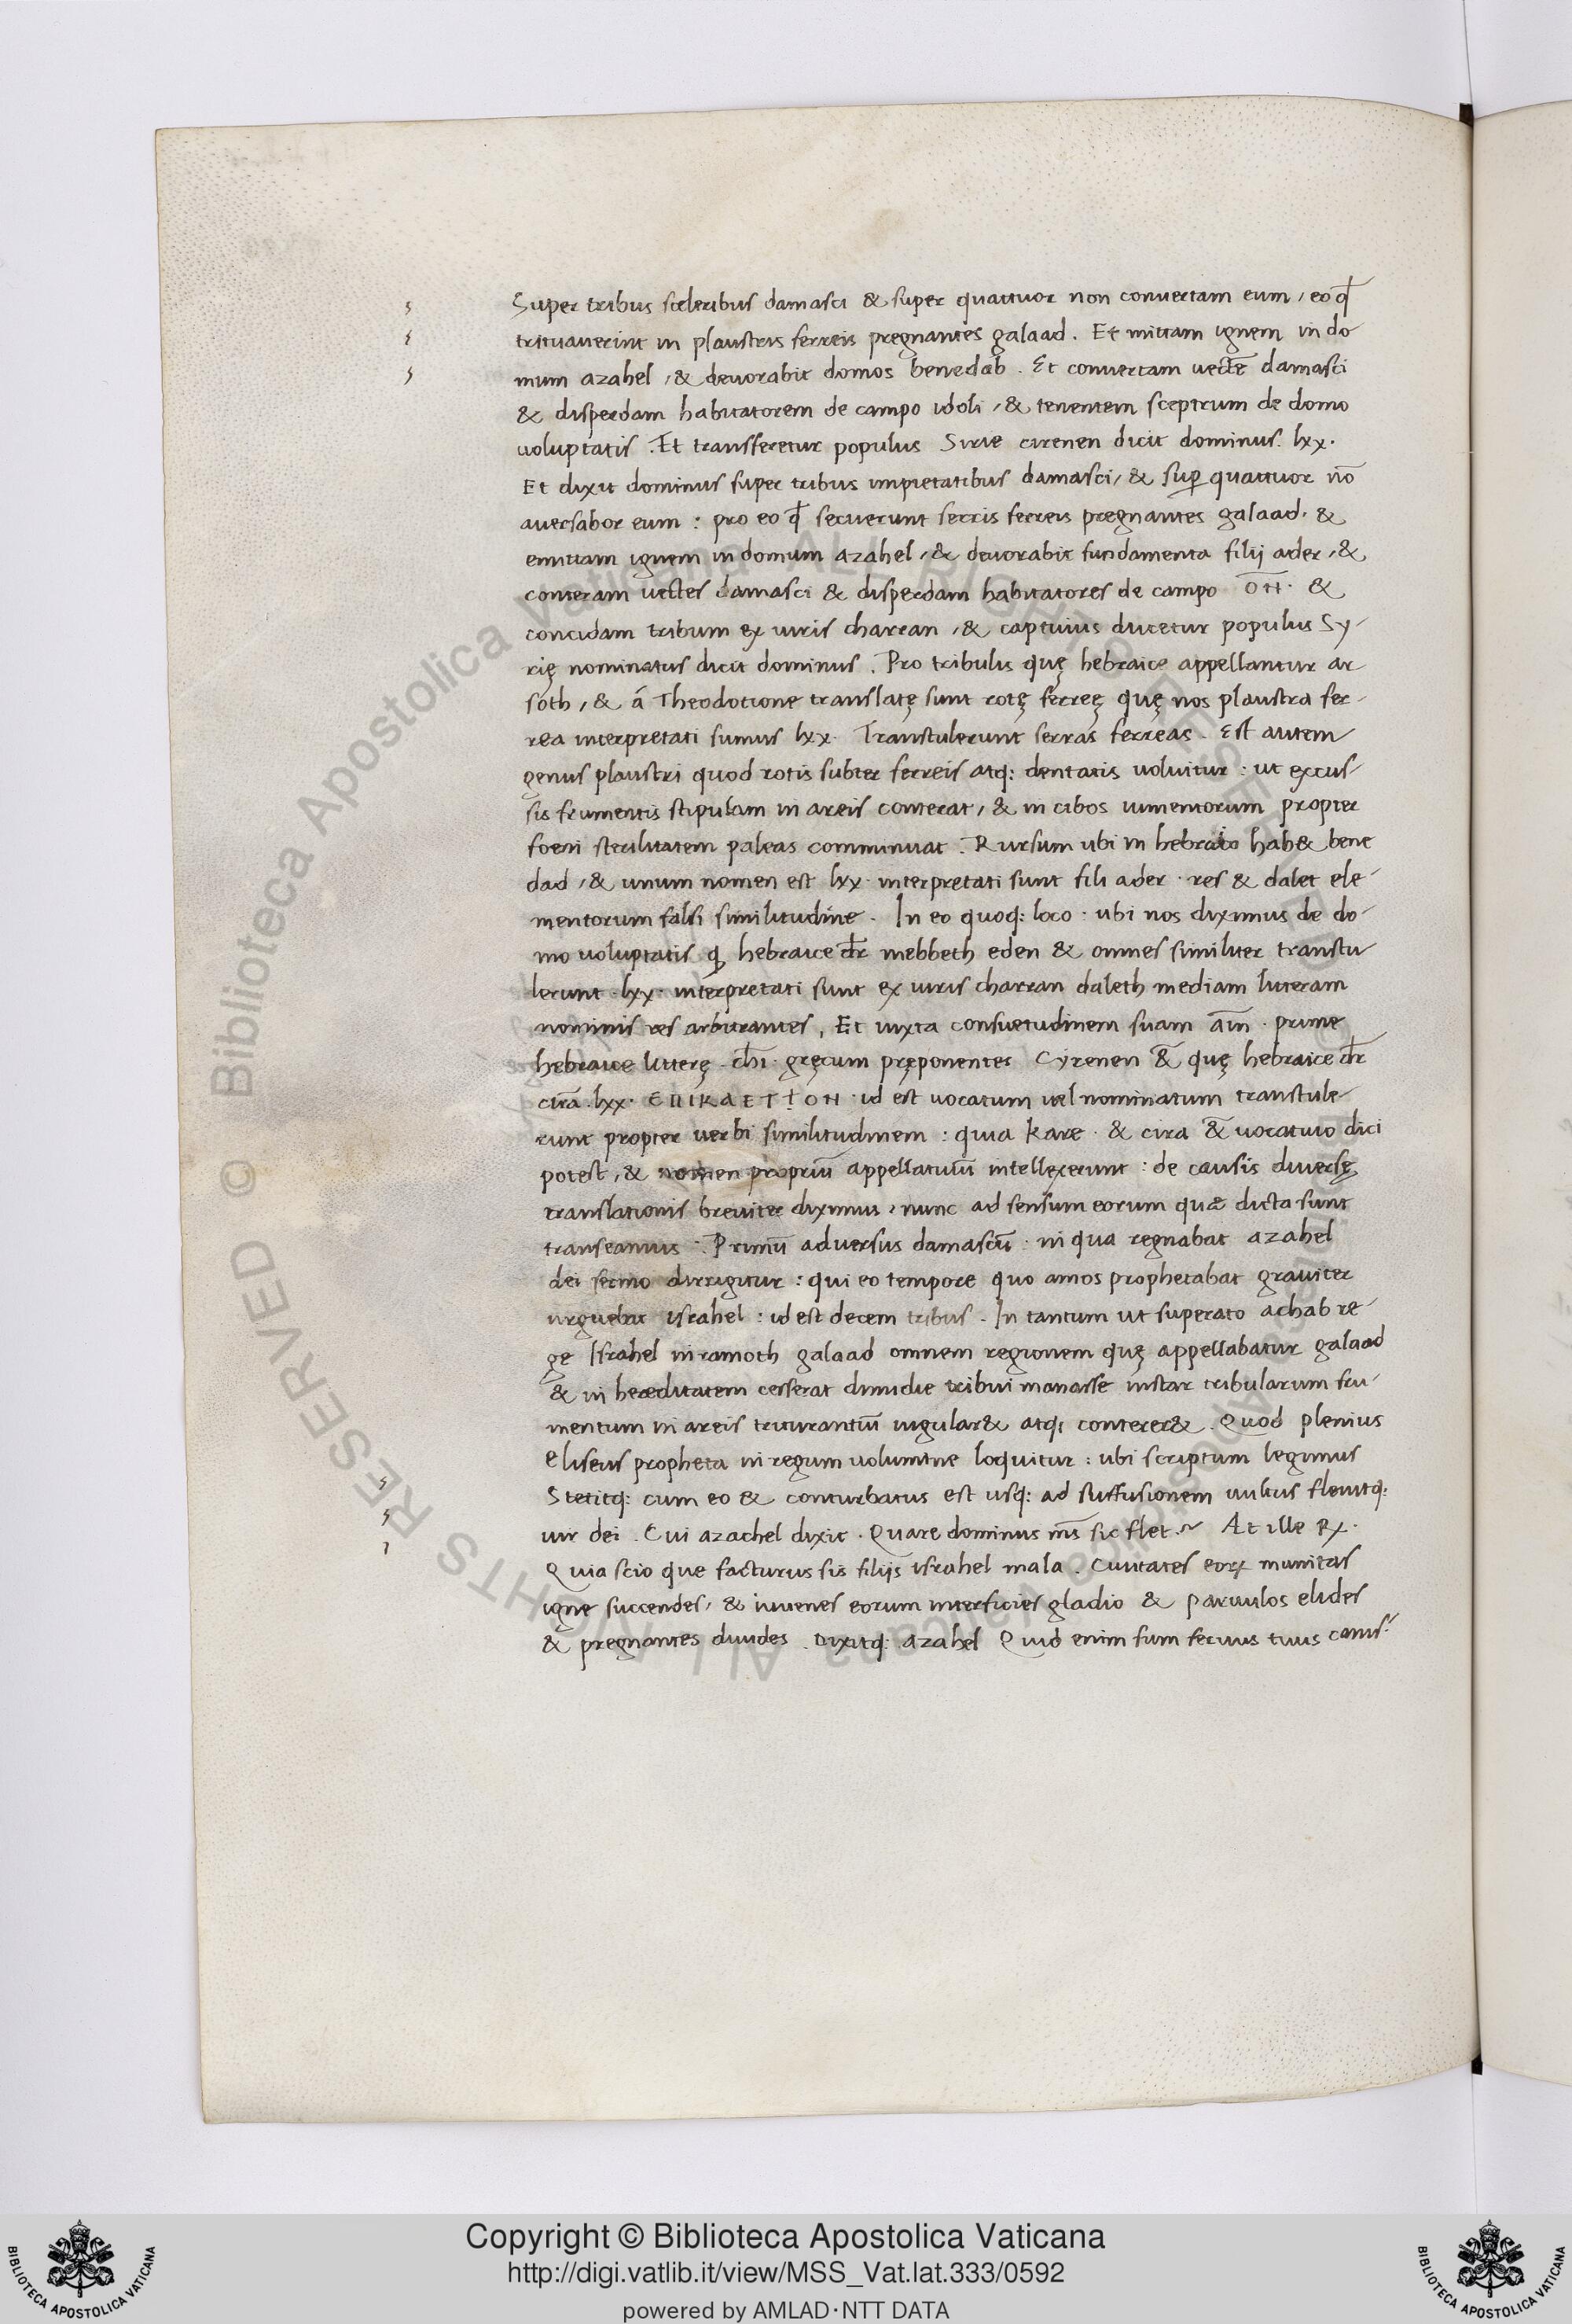 Super tribus sceleribus damasci & super quattuor non convertam eum, eo qd̄
trituaverint in plaustris ferreis pregnantes galaad. Et mittam ignem in do-
mum azahel, & devorabit domos benedab. Et convertam vectē damasci
& disperdam habitatorem de campo idoli, & tenentem sceptrum de domo
voluptatis. Et transferetur populus Sirie cirenen dicit dominus. lxx.
Et dixit dominus super tribus impietatibus damasci, & sup̱ quattuor nō
aversabor eum: pro eo qd̄ secuerunt serris ferreis pregnantes galaad. &
emittam ignem in domum azahel, & devorabit fundamenta filij ader, &
conteram vectes damasci & disperdam habitatores de campo ŌN. &
concidam tribum ex viris charran, & captivus ducetur populus Sy-
rię nominatus dicit dominus. Pro tribulis quę hebraice appellantur ar
soth, & á Theodotione translatę sunt rotę ferreę quę nos plaustra fer-
rea interpretati sumus lxx. Transtulerunt serras ferreas. Est autem
genus plaustri quod rotis subter ferreis atq: dentatis volvitur: ut excus-
sis frumentis stipulam in areis conterat, & in cibos iumentorum propter
foeni sterilitatem paleas comminuat. Rursum ubi in hebraio hab& bene
dad, & unum nomen est lxx. interpretati sunt fili ader. res & dalet ele-
mentorum falsi similitudine. In eo quoq: loco. ubi nos diximus de do-
mo voluptatis q hebraice dr̄ mebbeth eden & omnes similiter transtu-
lerunt. lxx. interpretati sunt ex viris charran daleth mediam litteram
nominis res arbitrantes, Et iuxta consuetudinem suam āin. prime
hebraice litterę. chi. gręcum pręponentes Cyrenen &̄ quę hebraice dr̄
cira. lxx. ЄΠΙΚΛΕΤΙΟΝ. id est vocatum vel nominatum transtule-
runt propter verbi similitudinem: quia kare. & cira &̄ vocatio dici
potest, & nomen propriū appellativū intellexerunt: de causis diversę
translationis breviter diximus, nunc ad sensum eorum quæ dicta sunt
transeamus. Primū adversus damascū. in qua regnabat azahel
dei sermo dirrigitur: qui eo tempore quo amos prophetabat graviter
urguebat israhel: id est decem tribus. In tantum ut superato achab re-
ge Israhel in ramoth galaad omnem regionem quę appellabatur galaad
& in hereditatem cesserat dimidie tribui manasse instar tribularum fru-
mentum in areis triturantiū iugular& atq: conterer&. Quod plenius
eliseus propheta in regum volumine loquitur: ubi scriptum legimus
Stetitq: cum eo & conturbatus est usq: ad suffusionem vultus flevitq:
vir dei. Cui azachel dixit. Quare dominus ms̄ sic flet.~ At ille Rx.
Quia scio que facturus sis filijs israhel mala. Civitates eorꝝ munitas
igne succendes, & iuvenes eorum interficies gladio & parvulos elides
& pregnantes divides. Dixitq: azahel Quid enim sum servus tuus canis.
Copyright © Biblioteca Apostolica Vaticana
http://digi.vatlib.it/view/MSS_Vat.lat.333/0592
powered by AMLAD·NTT DATA
BIBLIOTECA APOSTOLICA VATICANA
BIBLIOTECA APOSTOLICA VATICANA
© Biblioteca Apostolica Vaticana ALL RIGHTS RESERVED
© Biblioteca Apostolica Vaticana ALL RIGHTS RESERVED